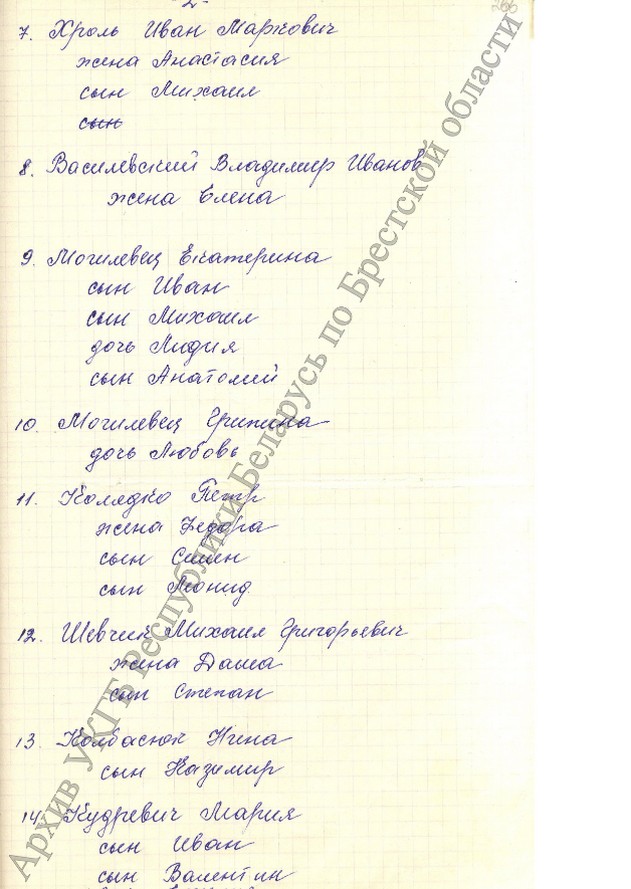 -2-
266
7. Хроль Иван Маркович
жена Анастасия
сын Михаил
сын
8. Василевский Владимир Иванов
жена Елена
9. Могилевец Екатерина
сын Иван
сын Михаил
дочь Лидия
сын Анатолий
10. Могилевец Грипина
дочь Любовь
11. Колядко Петр
жена Федора
сын Семен
сын Леонид
12. Шевчик Михаил Григорьевич
жена Даша
сын Степан
13. Колбасюк Нина
сын Казимир
14. Кудревич Мария
сын Иван
сын Валентин
Архив УКГБ Республики Беларусь по Брестской области